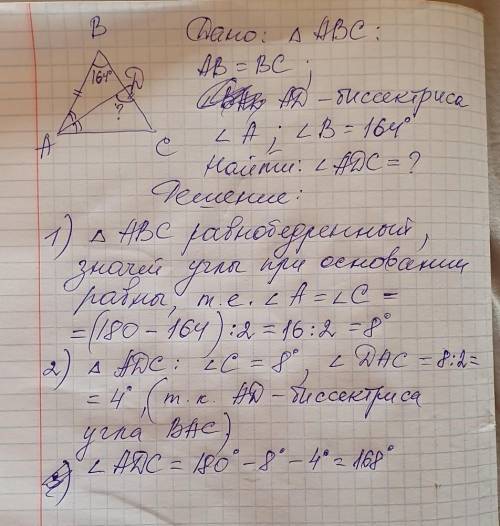 Дано: △ ABC:
AB = BC ;
AD - биссектриса
∠ A ; ∠ B = 164°
Найти: ∠ ADC = ?
B
164°
D
?
A
C
Решение:
1) △ ABC равнобедренный,
значей углы при основании
равны, т.е. ∠ A = ∠ C =
= (180 - 164) : 2 = 16 : 2 = 8°
2) △ ADC : ∠ C = 8°, ∠ DAC = 8:2=
= 4°, (т.к. AD - биссектриса
угла BAC)
∠ ADC = 180° - 8° - 4° = 168°